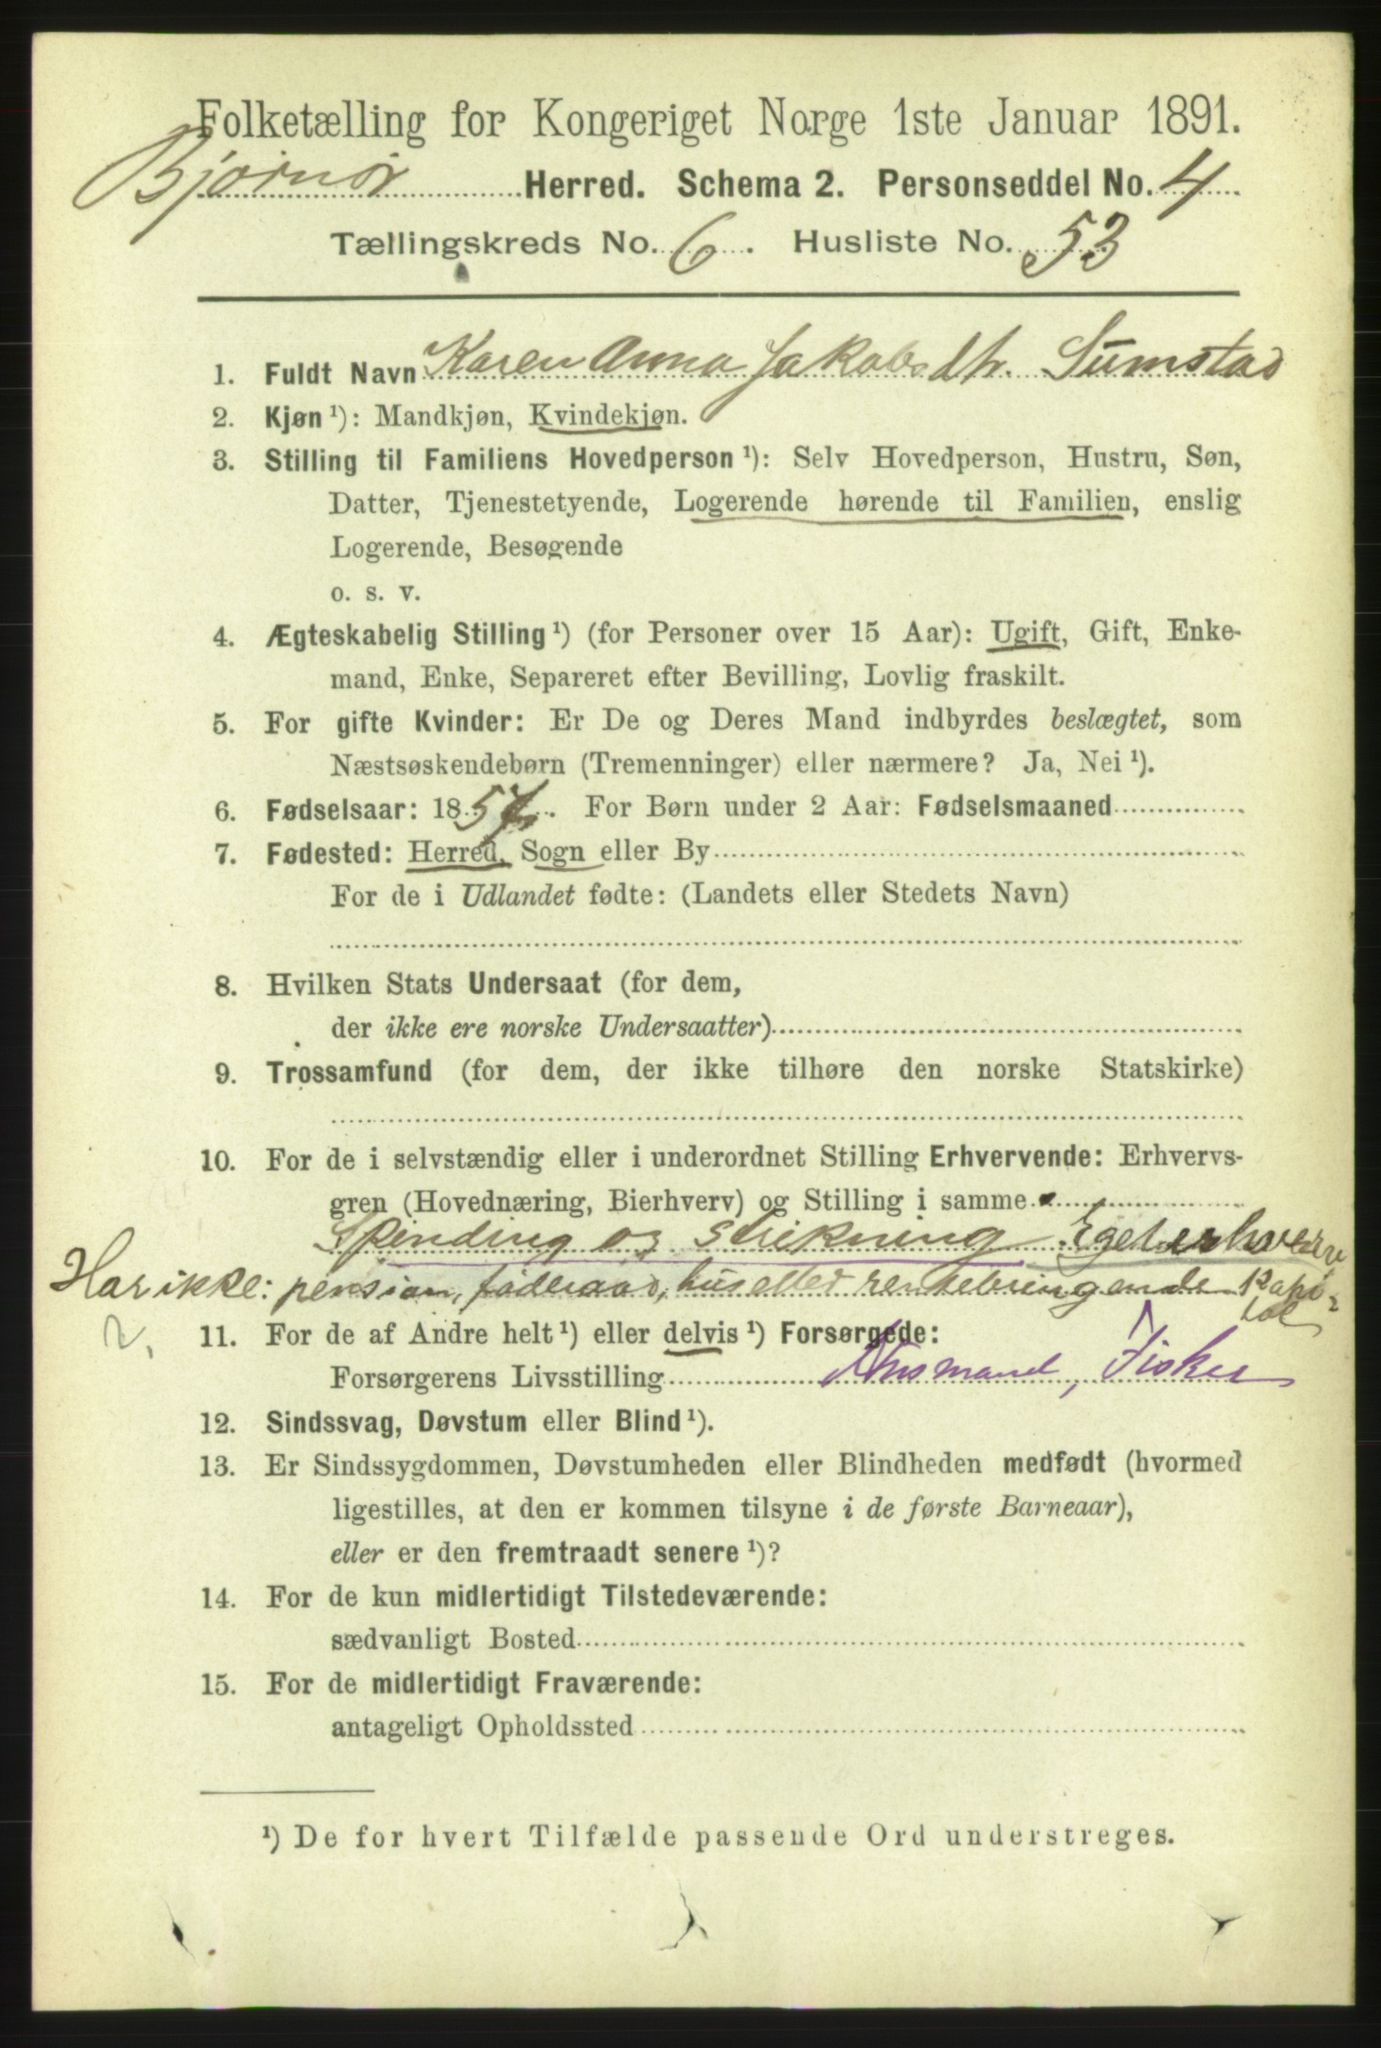 Folketælling for Kongeriget Norge 1ste Januar 1891.
Bjørnør Herred. Schema 2. Personseddel No. 4
Tællingskreds No. 6. Husliste No. 53
1. Fuldt Navn Karen Anna Jakobsdtr. Sumstad
2. Kjøn ¹): Mandkjøn, Kvindekjøn.
3. Stilling til Familiens Hovedperson ¹): Selv Hovedperson, Hustru, Søn,
Datter, Tjenestetyende, Logerende hørende til Familien, enslig
Logerende, Besøgende
o. s. v.
4. Ægteskabelig Stilling ¹) (for Personer over 15 Aar): Ugift, Gift, Enke-
mand, Enke, Separeret efter Bevilling, Lovlig fraskilt.
5. For gifte Kvinder: Er De og Deres Mand indbyrdes beslægtet, som
Næstsøskendebørn (Tremenninger) eller nærmere? Ja, Nei ¹).
6. Fødselsaar: 1857. For Børn under 2 Aar: Fødselsmaaned
7. Fødested: Herred, Sogn eller By
For de i Udlandet fødte: (Landets eller Stedets Navn)
8. Hvilken Stats Undersaat (for dem,
der ikke ere norske Undersaatter)
9. Trossamfund (for dem, der ikke tilhøre den norske Statskirke)
10. For de i selvstændig eller i underordnet Stilling Erhvervende: Erhvervs-
gren (Hovednæring, Bierhverv) og Stilling i samme
Spinding og Strikning Eget erhverv
Har ikke: pension, föderaad, hus eller rentebringende Kapi-
tal
2.
11. For de af Andre helt ¹) eller delvis ¹) Forsørgede:
Forsørgerens Livsstilling Husmand, Fisker
12. Sindssvag, Døvstum eller Blind ¹).
13. Er Sindssygdommen, Døvstumheden eller Blindheden medfødt (hvormed
ligestilles, at den er kommen tilsyne i de første Barneaar),
eller er den fremtraadt senere ¹)?
14. For de kun midlertidigt Tilstedeværende:
sædvanligt Bosted
15. For de midlertidigt Fraværende:
antageligt Opholdssted
¹) De for hvert Tilfælde passende Ord understreges.